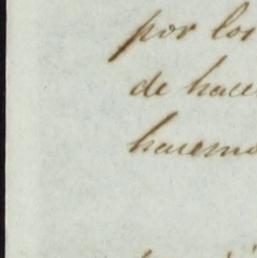 por los
de hace
hacemo